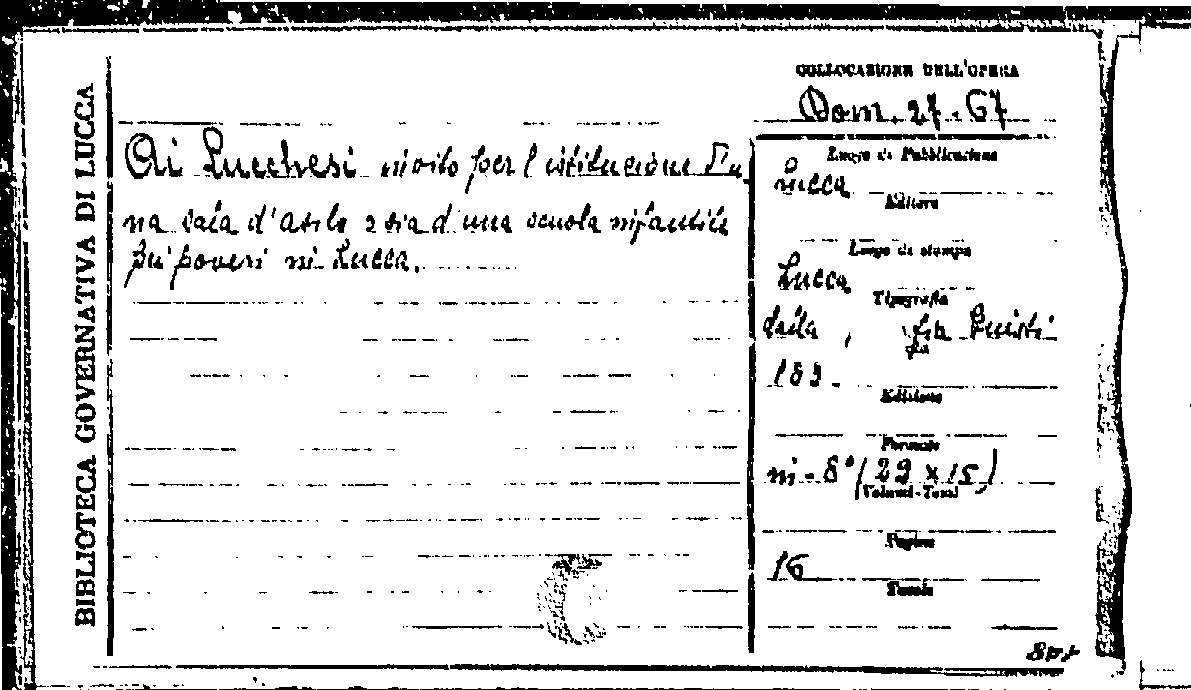 BIBLIOTECA GOVERNATIVA DI LUCCA
COLLOCAZIONE DELL'OPERA
Dom. 27-67
Ai Lucchesi invito per l'istituzione d'u-
na sala d'asilo ossia d'una scuola infantile
pei poveri in Lucca.
Luogo di Pubblicazione
Lucca
Editore
Luogo di stampa
Lucca
Tipografia
dalla, Giusti
183-
Edizione
Formato
in-8° (23 x 15)
Volumi-Tomi
Pagine
16
Tavole